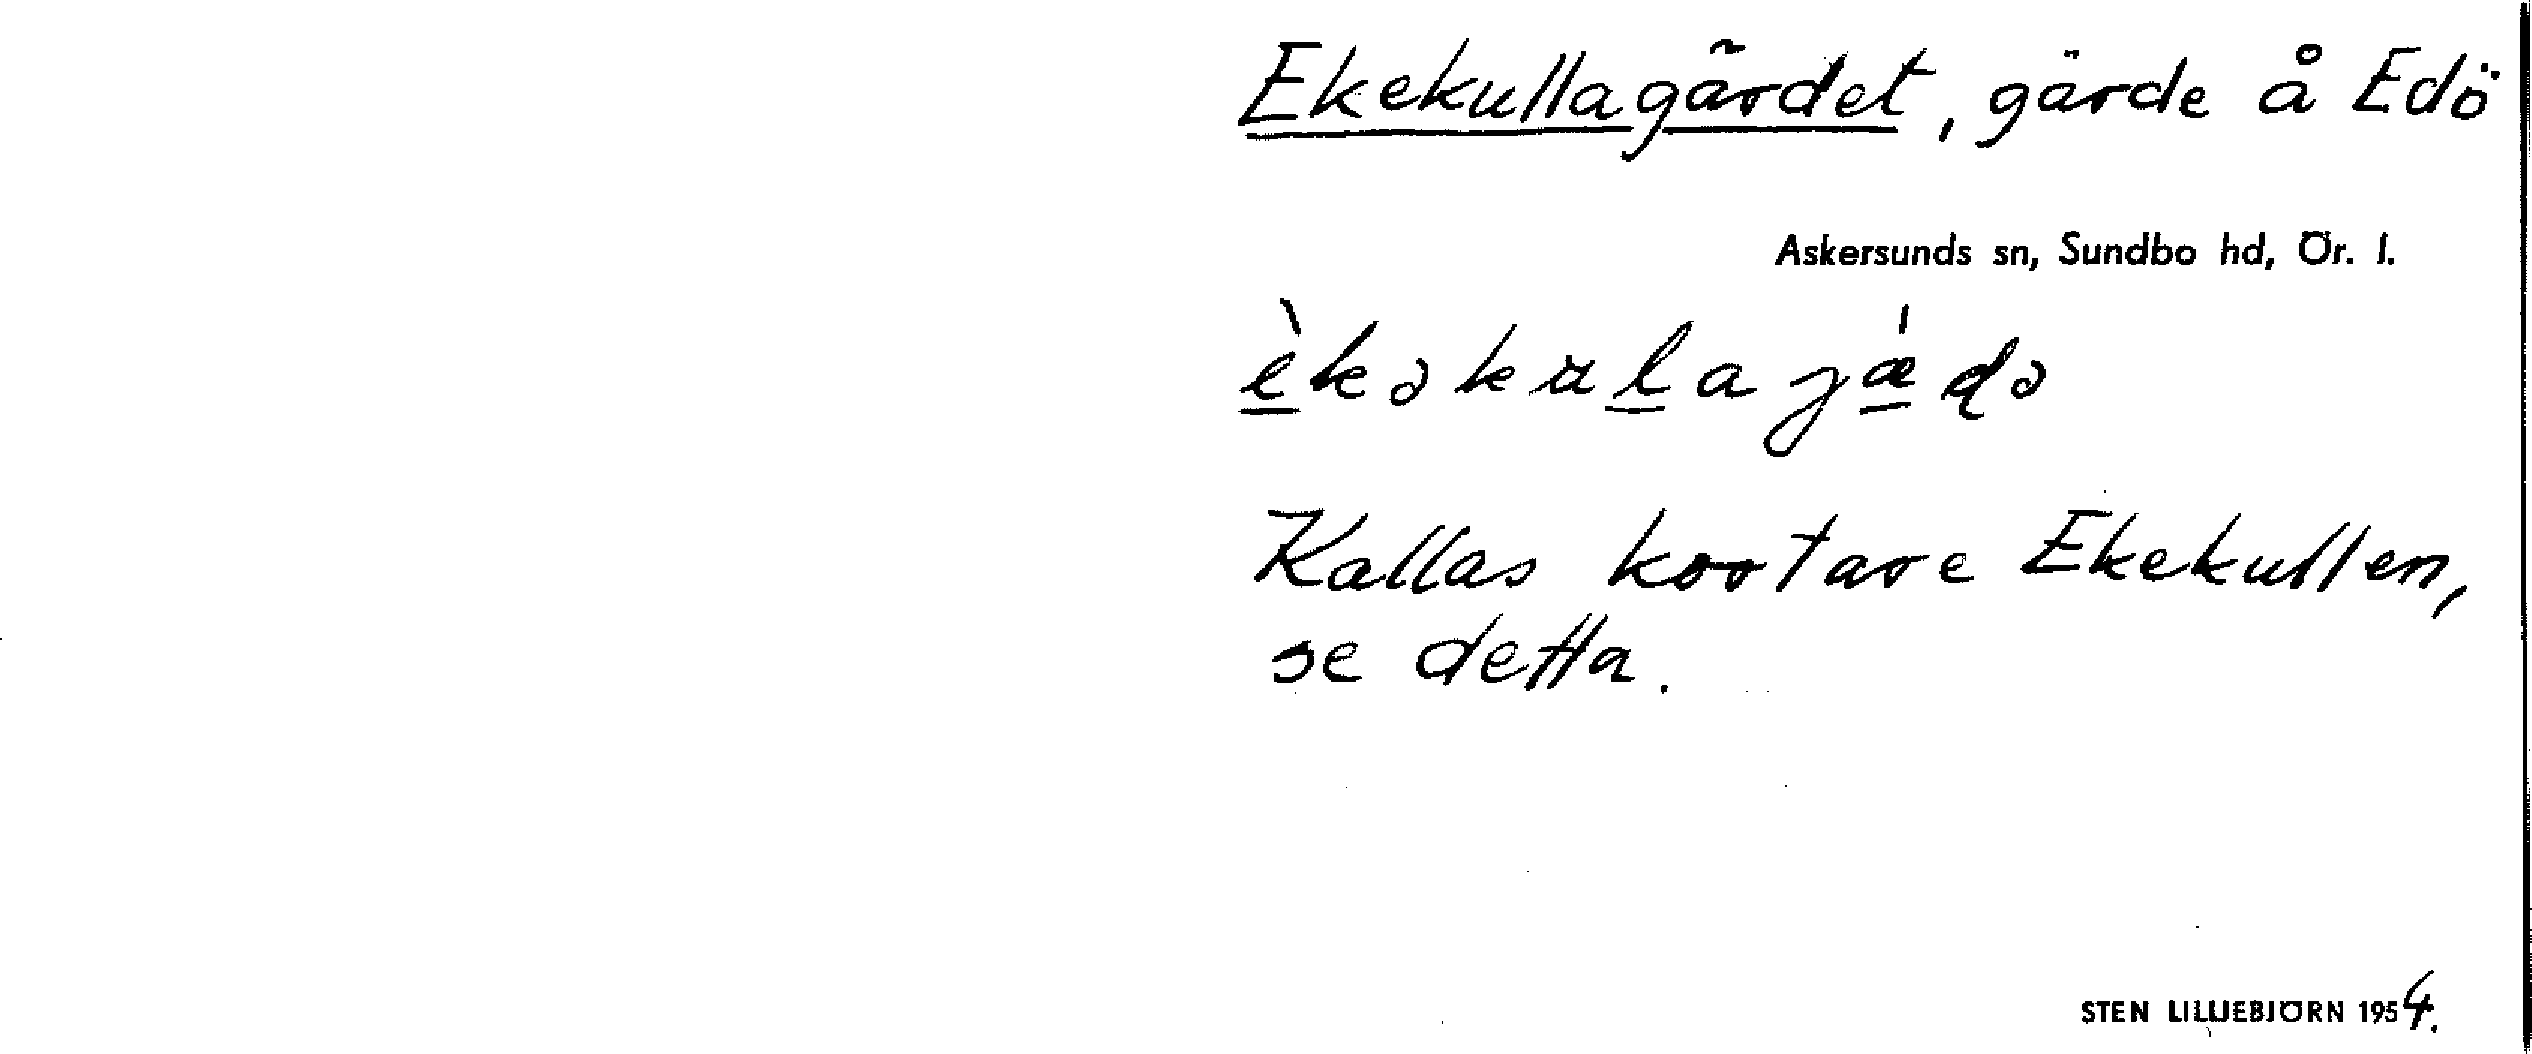 Ekekullagärdet, gärde å Edö
Askersunds sn, Sundbo hd, Ör. l.
è̱kəkuḻajǽ̱ɖə
Kallas kortare Ekekullen,
se detta.
STEN LILLJEBJÖRN 1954.